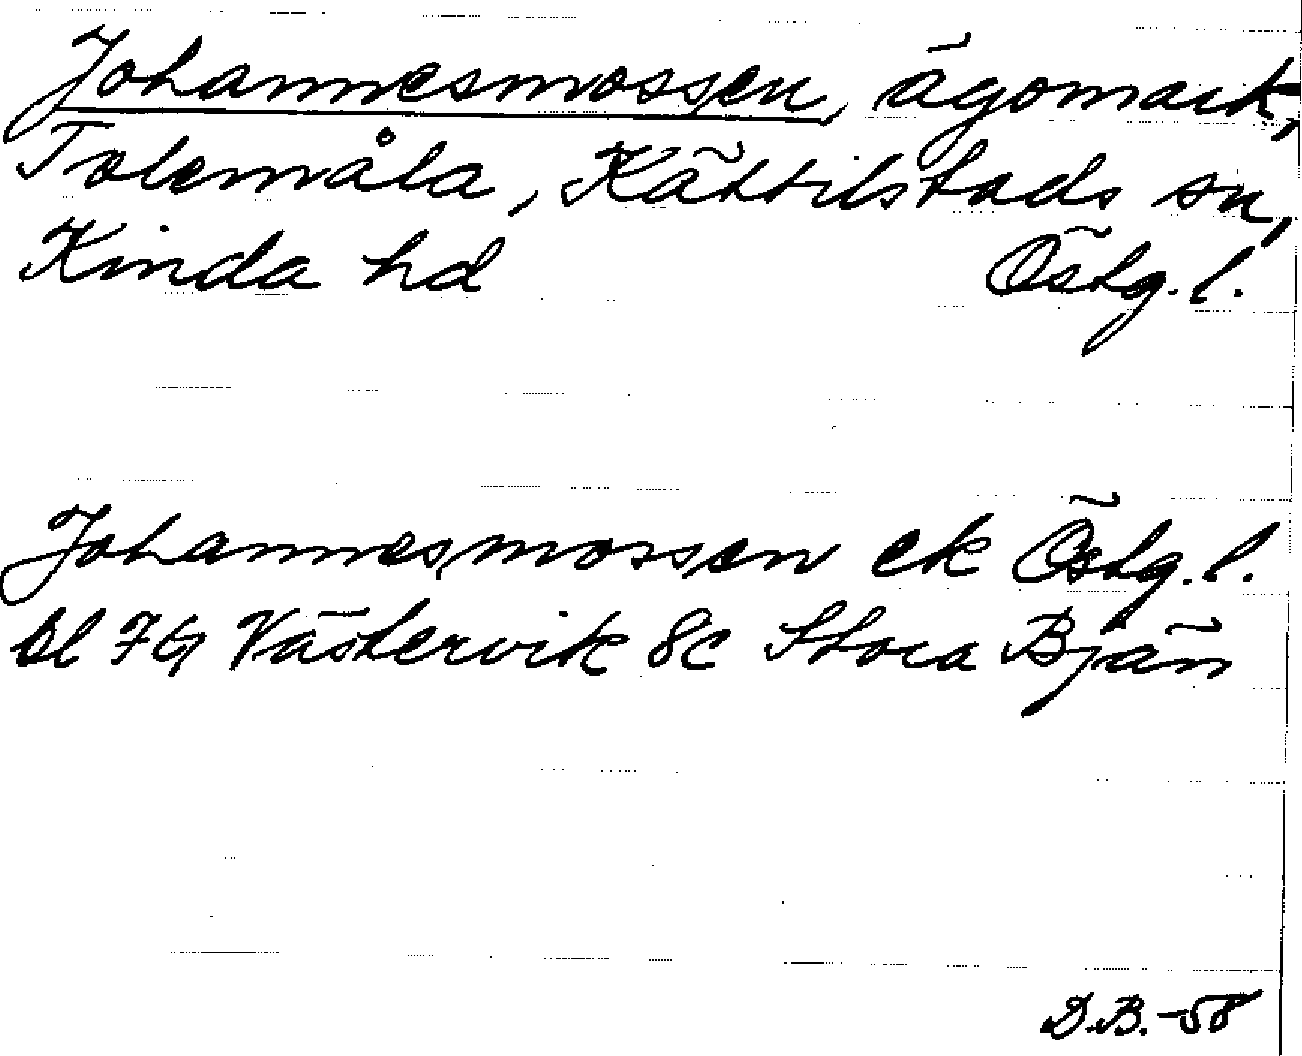 Johannesmossen, ägomark,
Tolemåla, Kättilstads sn,
Kinda hd Östg. l.
Johannesmossen ek Östg. l.
Bl 7G Västervik 8c Stora Bjän
D.B.-58